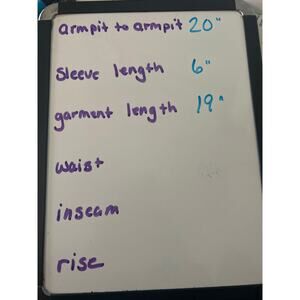 armpit to armpit 20"
sleeve length 6"
garment length 19"
waist
inseam
rise